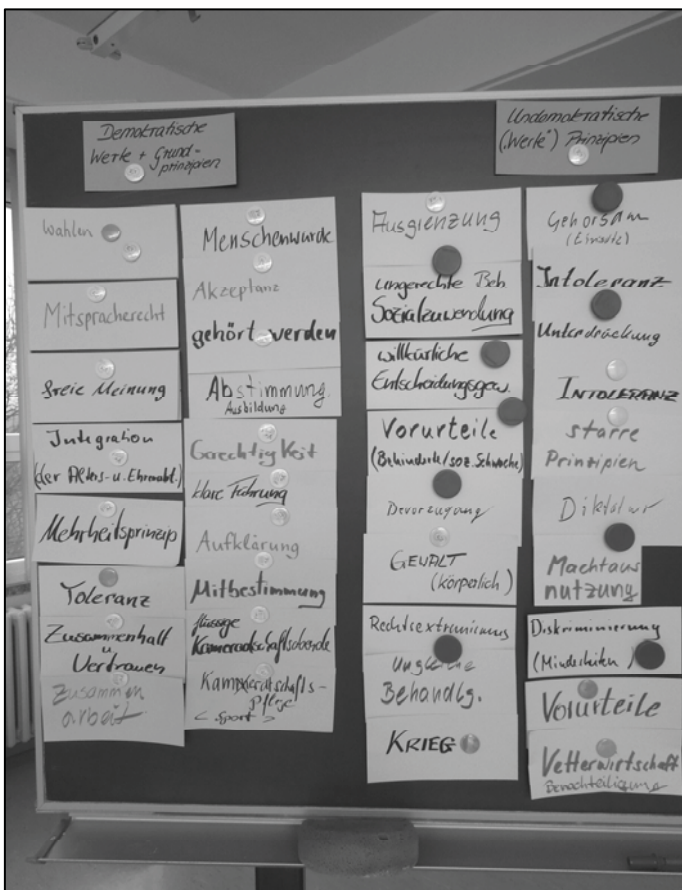 Demokratische
Werte + Grund-
prinzipien
Wahlen
Mitspracherecht
freie Meinung
Integration
(der Alters- u. Ehrenabt.)
Mehrheitsprinzip
Toleranz
Zusammenhalt
u
Vertrauen
Zusammen
arbeit
Menschenwürde
Akzeptanz
gehört werden
Abstimmung.
Ausbildung
Gerechtigkeit
klare Führung
Aufklärung
Mitbestimmung
flüssige
Kameradschaftsabende
Kameradschafts-
pflege
< Sport >
Undemokratische
("Werte") Prinzipien
Ausgrenzung
ungerechte Beh.
Sozialzuwendung
willkürliche
Entscheidungsgew.
Vorurteile
(Behinderte/soz. Schwache)
Bevorzugung
GEWALT
(körperlich)
Rechtsextremismus
Ungleiche
Behandlg.
KRIEG
Gehorsam
(Einsatz)
Intoleranz
Unterdrückung
INTOLERANZ
starre
Prinzipien
Diktatur
Machtaus
nutzung
Diskriminierung
(Minderheiten)
Vorurteile
Vetternwirtschaft
Benachteiligung